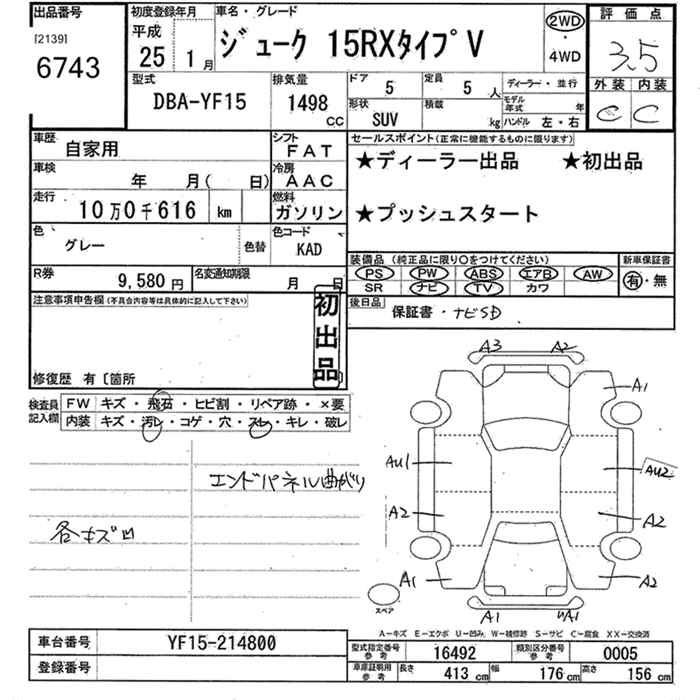 出品番号
[2139]
6743
初度登録年月
平成
25 1月
車名・グレード
ジューク 15RXタイプV
2WD
・
4WD
評価点
3.5
外装 内装
C C
型式
DBA-YF15
排気量
1498
CC
ドア
5
定員
5 人
ディーラー・並行
形状
SUV
積載
kg
モデル年式
年
ハンドル 左・右
車歴
自家用
シフト
FAT
車検
年 月( 日)
冷房
AAC
走行
10万0千616 km
燃料
ガソリン
色
グレー
色替
色コード
KAD
R券
9,580円
名変通知期限
月 日
セールスポイント(正常に機能するものに限ります)
★ディーラー出品 ★初出品
★プッシュスタート
装備品(純正品に限り○をつけてください)
PS PW ABS エアB AW
SR ナビ TV カワ
新車保証書
有・無
後日品
保証書・ナビSD
注意事項申告欄(不具合内容等は具体的に記入して下さい)
初出品
修復歴 有〔箇所 〕
検査員記入欄
FW キズ・飛石・ヒビ割・リペア跡・×要
内装 キズ・汚レ・コゲ・穴・スレ・キレ・破レ
エンドパネル曲がり
各キズ凹
A3 A2
A1
AU1 AU2
A2 A2
A1 A2
A1 A1
スペア
A-キズ E-エクボ U-凹み W-補修跡 S-サビ C-腐食 XX-交換済
車台番号
YF15-214800
登録番号
型式指定番号
参考
16492
類別区分番号
参考
0005
車庫証明用
参考
長さ
413 cm
幅
176 cm
高さ
156 cm